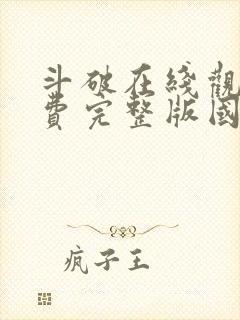 斗破在綫觀
費完整版國
疯子王